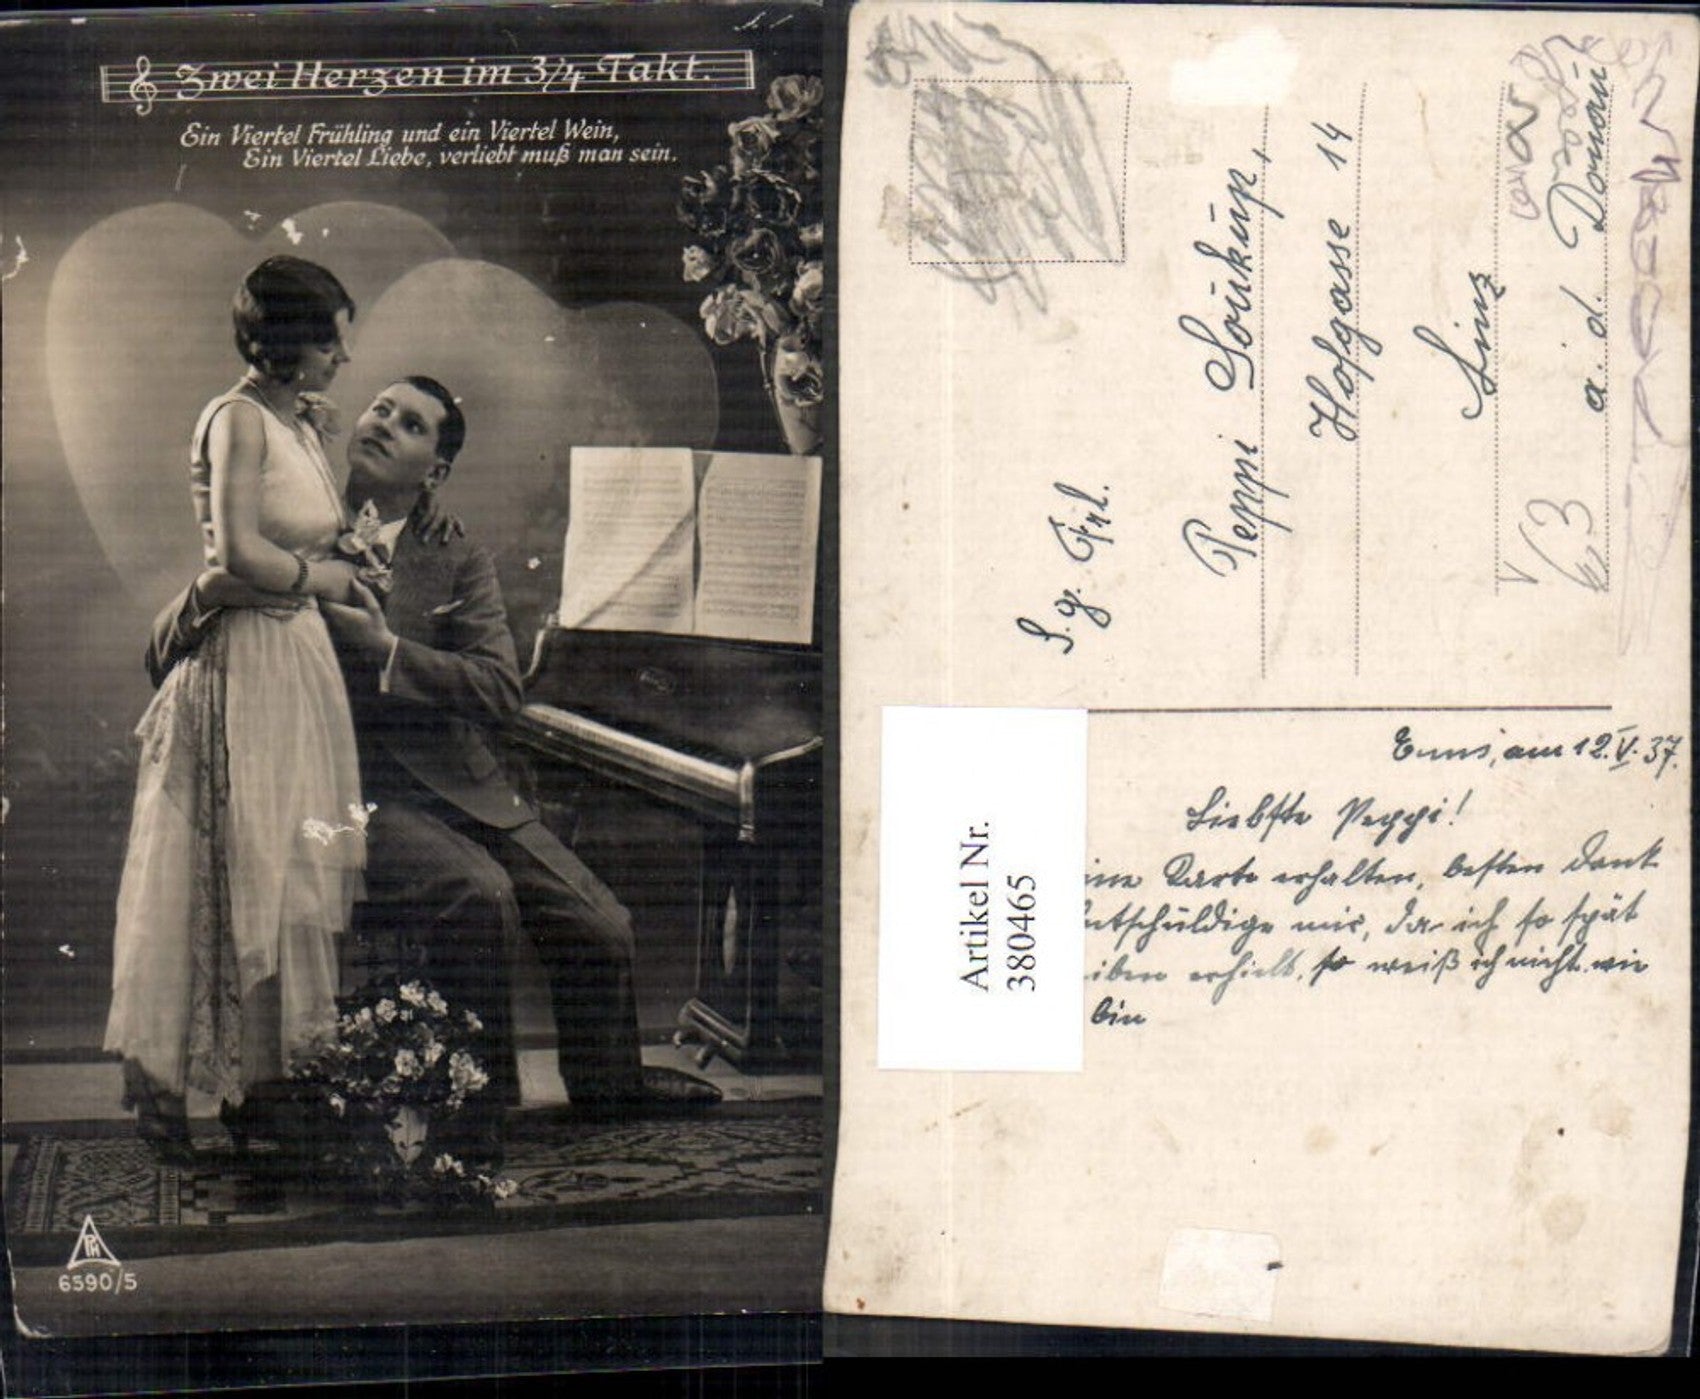 Zwei Herzen im 3/4 Takt.
Ein Viertel Frühling und ein Viertel Wein,
Ein Viertel Liebe, verliebt muß man sein.
PH
6590/5
S. g. Frl.
Peppi Soukup,
Hofgasse 14
Linz
a. d. Donau
63
Artikel Nr.
380465
Enns, am 12.V.37.
Liebste Peppi!
ine Karte erhalten, besten Dank
ntschuldige mir, da ich so spät
iben erhielt, so weiß ich nicht wie
bin